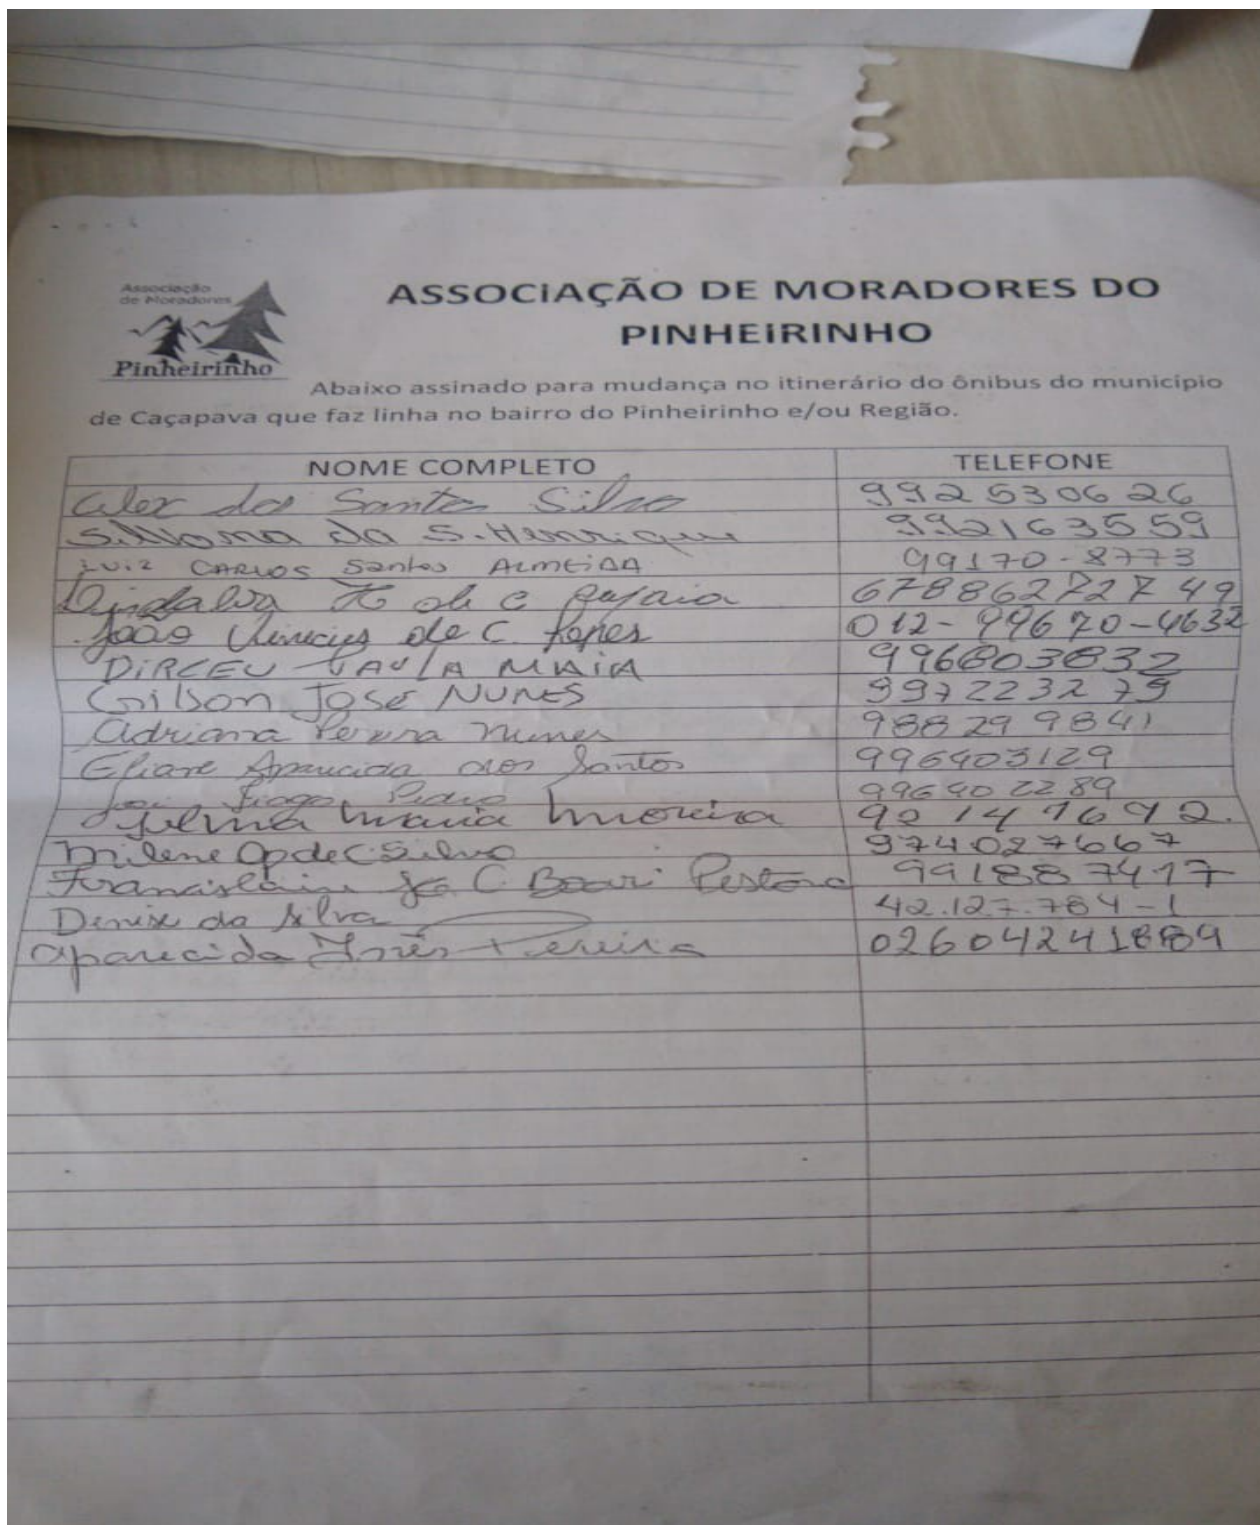 Associação
de Moradores
Pinheirinho
ASSOCIAÇÃO DE MORADORES DO
PINHEIRINHO
Abaixo assinado para mudança no itinerário do ônibus do município
de Caçapava que faz linha no bairro do Pinheirinho e/ou Região.
NOME COMPLETO TELEFONE
Alex dos Santos Silva 992530626
da S. Henrique 992163559
LUIZ CARLOS Santos ALMEIDA 99170-8773
de C 67886272749
João Vinicius de C. Lopes 012-99670-4632
DIRCEU PAULA MAIA 996803832
Gilson José NUNES 997223279
Adriana Pereira Nunes 988299841
Eliane Aparecida dos Santos 996403129
Tiago 996402289
Maria Moreira 92147692.
Milene Ap de C Silva 974027667
C. Pestana 991887417
Denise da Silva 42.127.784-1
Aparecida Inês Pereira 02604241889